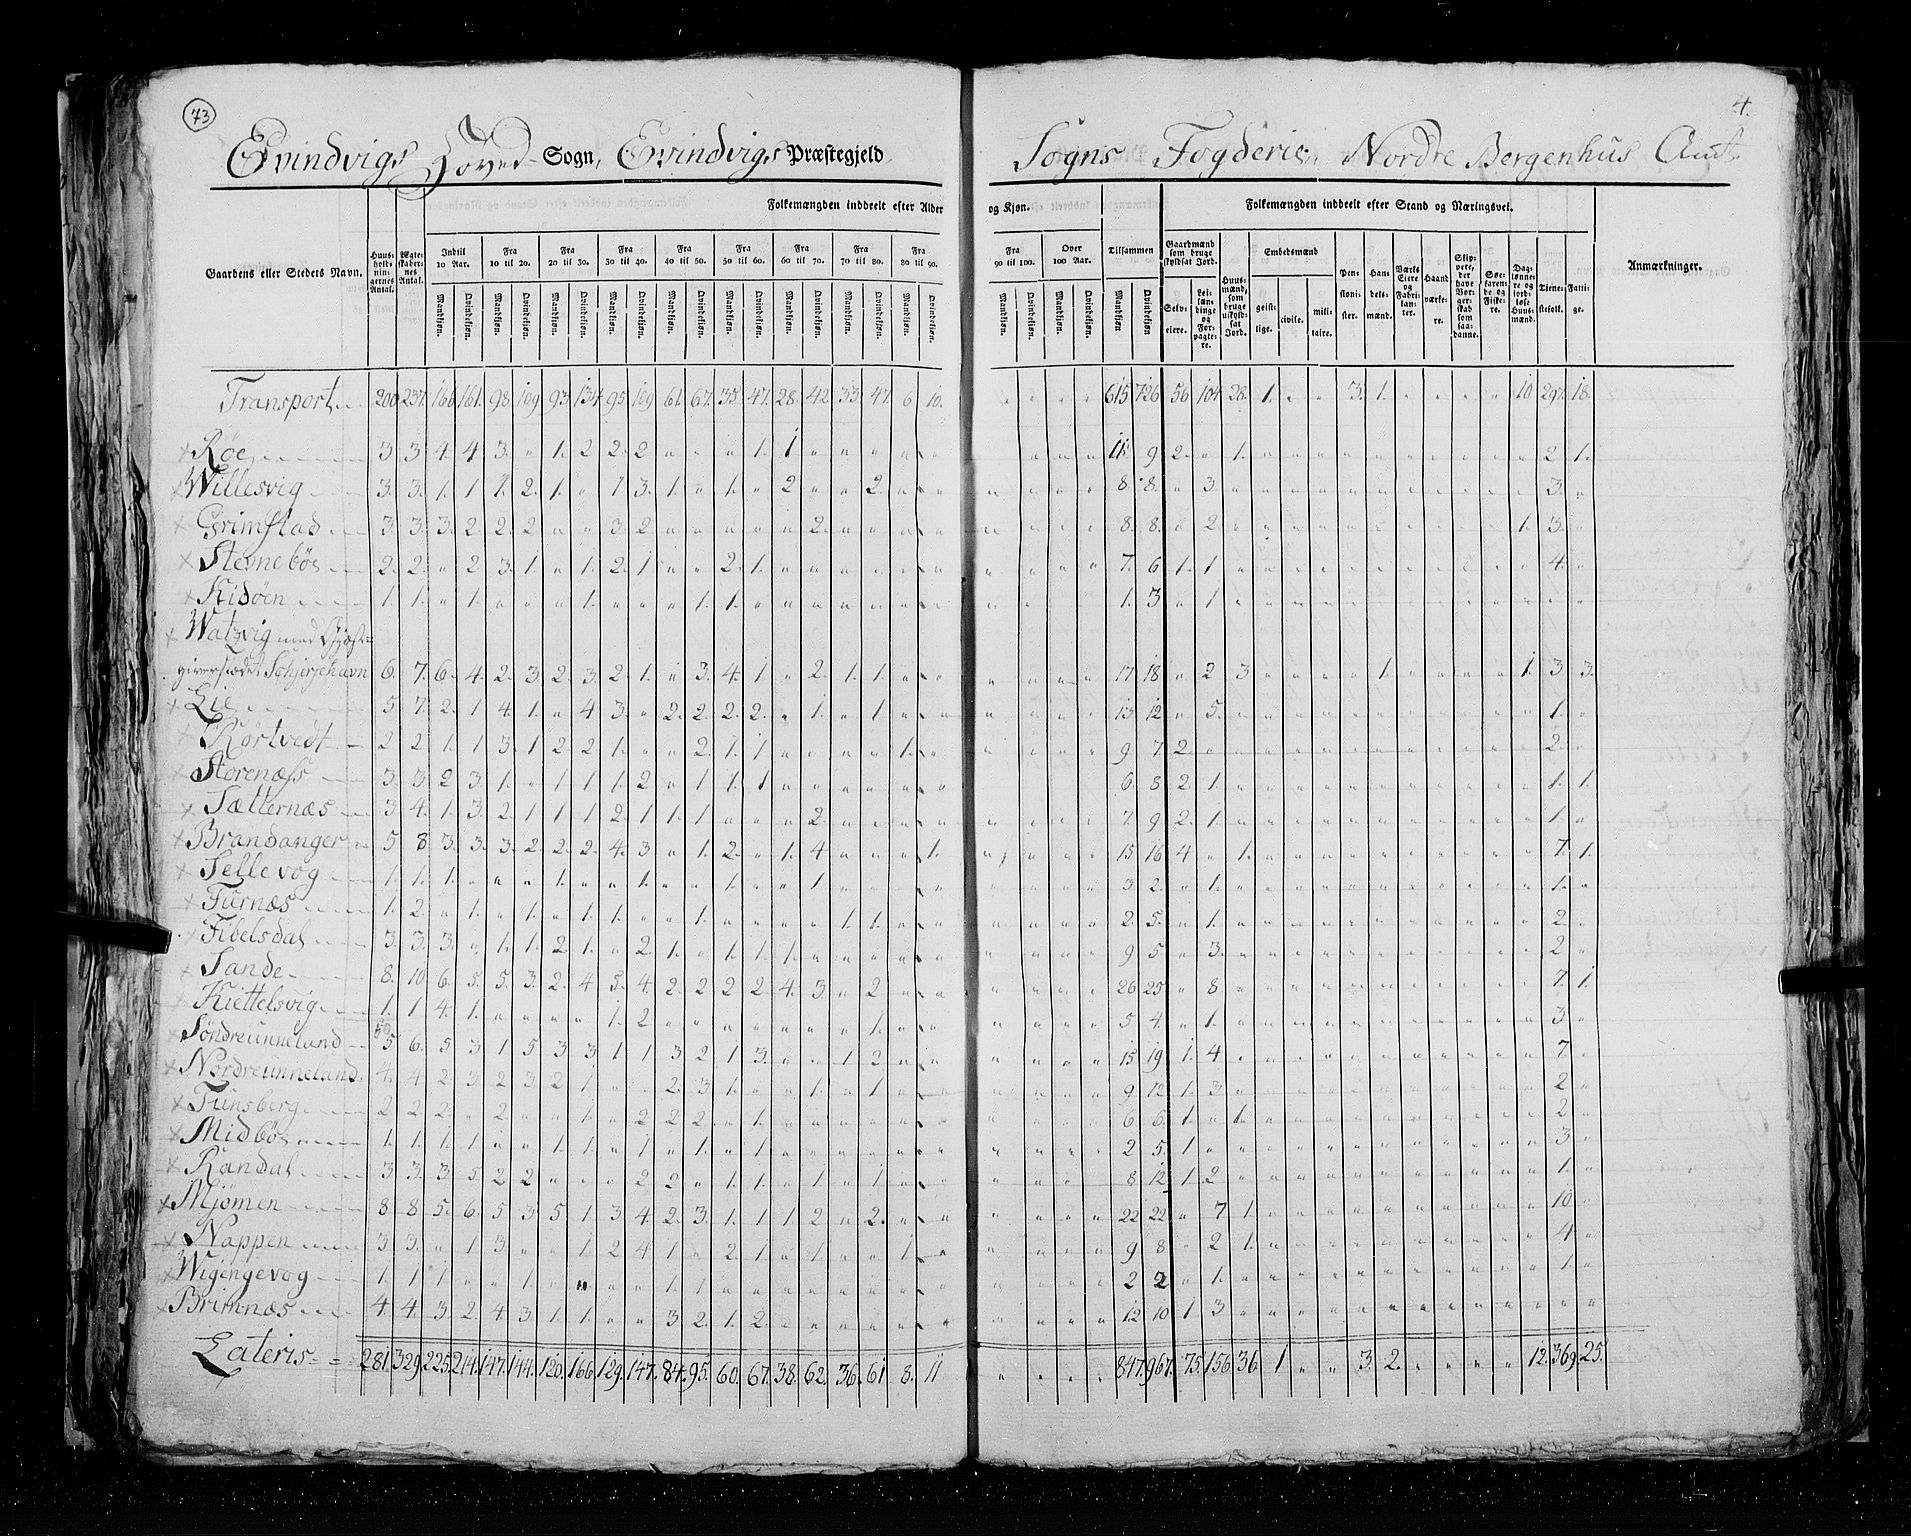 73
4.
Evindvigs Hoved- Sogn, Evindvigs Præstegjeld
Sogns Fogderie, Nordre Bergenhus Amt.
Gaardens eller Stedets Navn. Huus-holdnin-gernes Antal. Ægte-skaber-nes Antal. Folkemængden inddeelt efter Alder og Kjøn. Folkemængden inddeelt efter Stand og Næringsvei. Anmærkninger.
Indtil 10 Aar. Fra 10 til 20. Fra 20 til 30. Fra 30 til 40. Fra 40 til 50. Fra 50 til 60. Fra 60 til 70. Fra 70 til 80. Fra 80 til 90. Fra 90 til 100. Over 100 Aar. Tilsammen
Mandkjøn. Qvindekjøn.
Gaardmænd som bruge skyldsat Jord. Selv-eiere. Lei-læn-dinge og For-pagte-re. Huus-mænd, som bruge uskyld-sat Jord. Embedsmænd geist-lige. civile. mili-taire. Pen-sioni-ster. Han-dels-mænd. Værks Eiere og Fabri-kan-ter. Haand værke-re. Skip-pere, der have Bor-ger-skab som saa-danne. Søe-faren-de og Fiske-re. Dag-lønne-re og jord-løse Huus-mænd. Tiene-stefolk. Fatti-ge.
Transport 200 237 166 161 98 109 93 134 95 109 61 67 35 47 28 42 33 47 6 10 " " " " 615 726 56 104 28 1 " " 3 1 " " " " 10 297 18
Røe 3 3 4 4 3 " 1 2 2 2 " " " 1 1 " " " " " " " " " 11 9 2 " 1 " " " " " " " " " " 2 1
Willesvig 3 3 1 1 1 2 1 " 1 3 1 " 1 " 2 " " 2 " " " " " " 8 8 " 3 " " " " " " " " " " " 3 "
Grimstad 3 3 3 2 2 2 " " 3 2 " " " " " 2 " " " " " " " " 8 8 " 2 " " " " " " " " " " 1 3 "
Stemnebøe 2 2 " 2 3 1 " 1 2 1 " " 2 1 " " " " " " " " " " 7 6 1 1 " " " " " " " " " " " 4 "
Kidøen 1 1 " 1 " " " 1 " " " 1 1 " " " " " " " " " " " 1 3 " 1 " " " " " " " " " " " " "
Watzvig med Gjæst-
giverstædet Schjerjehavn 6 7 6 4 2 3 2 3 2 1 " 3 4 1 " 2 1 1 " " " " " " 17 18 " 2 3 " " " " 1 " " " " 1 3 3
Lie 5 7 2 1 4 1 " 4 3 " 2 2 2 2 " 1 " 1 " " " " " " 13 12 " 5 " " " " " " " " " " " 1 "
Kortvedt 2 2 1 1 3 1 2 2 1 " " 2 1 1 " " " " 1 " " " " " 9 7 2 " " " " " " " " " " " " 2 "
Storenæss 3 3 2 3 1 " 1 1 1 2 " 1 1 1 " " " " " " " " " " 6 8 2 1 " " " " " " " " " " " 1 1
Sætternæs 3 4 1 3 2 1 1 1 2 1 1 1 " " " 2 " " " " " " " " 7 9 2 1 " " " " " " " " " " " 1 "
Brandanger 5 8 3 3 3 2 2 2 4 3 " 1 2 " 1 4 " " " 1 " " " " 15 16 4 " 1 " " " " " " " " " " 7 1
Sellevog 1 1 1 " " " 1 " " 1 " " 1 " " 1 " " " " " " " " 3 2 " 1 " " " " " " " " " " " 1 "
Furnæs 1 2 " 1 " 1 " 1 1 " " 1 " " " " 1 1 " " " " " " 2 5 " 1 " " " " " " " " " " " 2 "
Fibelsdal 3 3 3 " 1 1 2 1 " 2 1 " 1 1 1 " " " " " " " " " 9 5 " 3 " " " " " " " " " " " 2 "
Sande 8 10 6 5 5 3 2 4 5 4 2 2 2 2 4 3 " 2 " " " " " " 26 25 " 8 " " " " " " " " " " " 7 1
Kiettelsvig 1 1 4 1 " " " " 1 2 " " " " " " " 1 " " " " " " 5 4 " 1 " " " " " " " " " " " 3 "
Søndreunneland 5 6 5 3 1 5 3 3 1 1 3 2 1 3 " " 1 2 " " " " " " 15 19 1 4 " " " " " " " " " " " 7 "
Nordreunneland 4 4 2 3 2 3 2 1 " " 2 3 1 " " 1 " 1 " " " " " " 9 12 1 3 " " " " " " " " " " " 2 "
Tunsberg 2 2 2 " 2 " " 1 " 2 2 2 " 1 " " " " " " " " " " 6 6 1 " 1 " " " " " " " " " " 2 "
Midbøe 1 1 1 1 " " 1 1 " 1 " 1 " 1 " " " " " " " " " " 2 5 1 " " " " " " " " " " " " 3 "
Randal 3 3 3 5 2 2 " " " 2 2 " 1 1 " 1 " 1 " " " " " " 8 12 1 2 " " " " " " " " " " " 1 "
Mjømen 8 8 5 6 5 3 5 1 3 4 2 3 1 1 1 2 " 2 " " " " " " 22 22 " 7 1 " " " " " " " " " " 10 "
Nappen 3 3 " 1 3 " " 1 2 4 1 " 2 1 " 1 " " 1 " " " " " 9 8 " 2 1 " " " " " " " " " " 4 "
Wigengevog 1 1 1 " " 1 " " " " 1 1 " " " " " " " " " " " " 2 2 " 1 " " " " " " " " " " " 1 "
Brimnæs 4 4 3 2 4 3 1 1 " " 3 2 1 2 " " " " " " " " " " 12 10 1 3 " " " " " " " " " " " " "
Lateris 281 329 225 214 147 144 120 166 129 147 84 95 60 67 38 62 36 61 8 11 " " " " 847 967 75 156 36 1 " " 3 2 " " " " 12 369 25